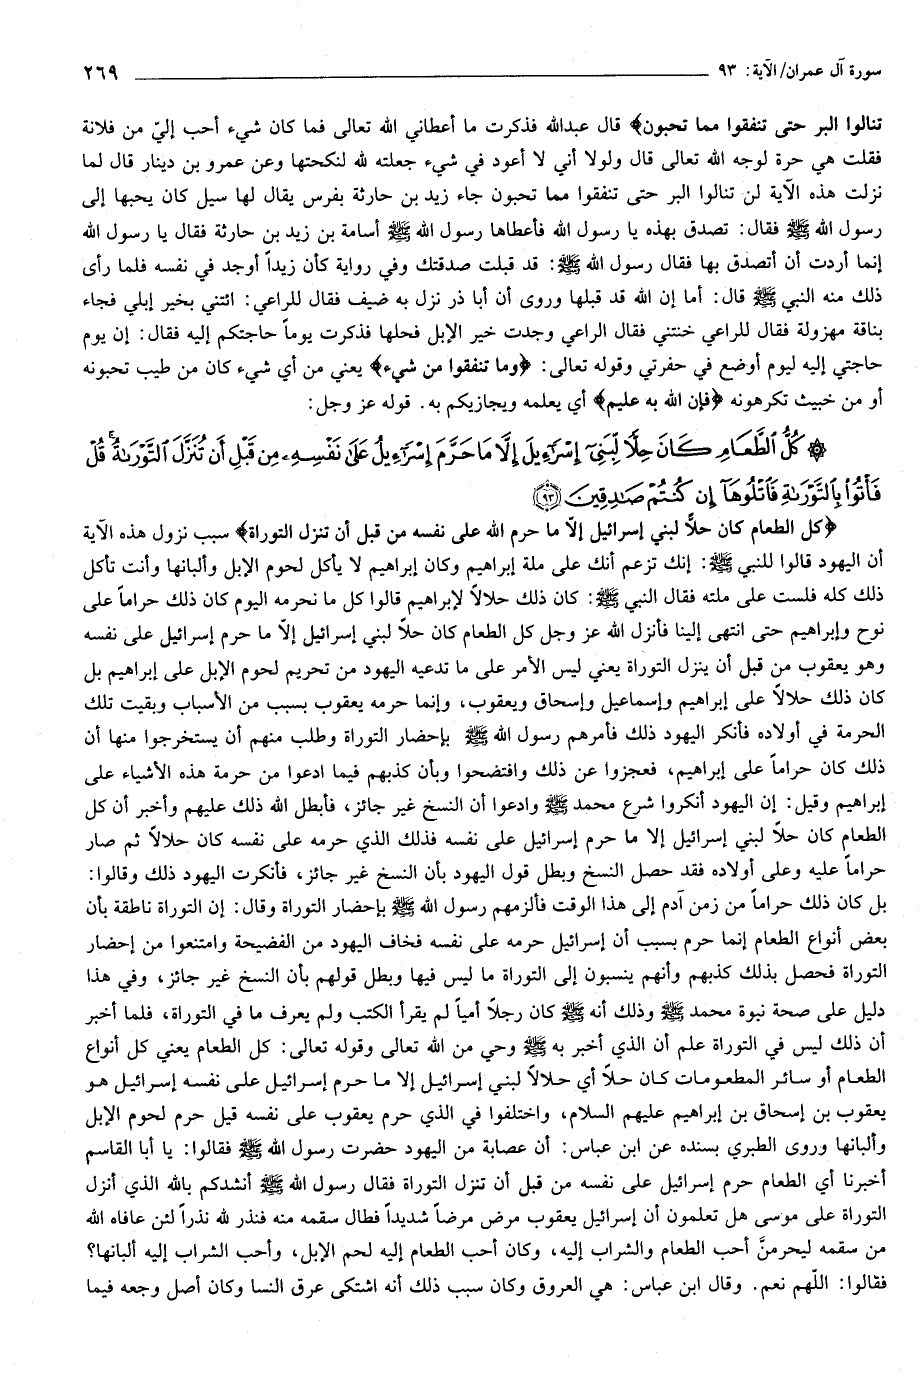 سورة آل عمران/ الآية: ٩٣ ٢٦٩
تنالوا البر حتى تنفقوا مما تحبون﴾ قال عبدالله فذكرت ما أعطاني الله تعالى فما كان شيء أحب إليّ من فلانة
فقلت هي حرة لوجه الله تعالى قال ولولا أني لا أعود في شيء جعلته لله لنكحتها وعن عمرو بن دينار قال لما
نزلت هذه الآية لن تنالوا البر حتى تنفقوا مما تحبون جاء زيد بن حارثة بفرس يقال لها سيل كان يحبها إلى
رسول الله ﷺ فقال: تصدق بهذه يا رسول الله فأعطاها رسول الله ﷺ أسامة بن زيد بن حارثة فقال يا رسول الله
إنما أردت أن أتصدق بها فقال رسول الله ﷺ: قد قبلت صدقتك وفي رواية كأن زيداً أوجد في نفسه فلما رأى
ذلك منه النبي ﷺ قال: أما إن الله قد قبلها وروى أن أبا ذر نزل به ضيف فقال للراعي: ائتني بخير إبلي فجاء
بناقة مهزولة فقال للراعي خنتني فقال الراعي وجدت خير الإبل فحلها فذكرت يوماً حاجتكم إليه فقال: إن يوم
حاجتي إليه ليوم أوضع في حفرتي وقوله تعالى: ﴿وما تنفقوا من شيء﴾ يعني من أي شيء كان من طيب تحبونه
أو من خبيث تكرهونه ﴿فإن الله به عليم﴾ أي يعلمه ويجازيكم به. قوله عز وجل:
۞ كُلُّ ٱلطَّعَامِ كَانَ حِلًّا لِّبَنِىٓ إِسْرَٰٓءِيلَ إِلَّا مَا حَرَّمَ إِسْرَٰٓءِيلُ عَلَىٰ نَفْسِهِۦ مِن قَبْلِ أَن تُنَزَّلَ ٱلتَّوْرَىٰةُ ۗ قُلْ
فَأْتُوا۟ بِٱلتَّوْرَىٰةِ فَٱتْلُوهَآ إِن كُنتُمْ صَـٰدِقِينَ ﴿٩٣﴾
﴿كل الطعام كان حلاً لبني إسرائيل إلاّ ما حرم الله على نفسه من قبل أن تنزل التوراة﴾ سبب نزول هذه الآية
أن اليهود قالوا للنبي ﷺ: إنك تزعم أنك على ملة إبراهيم وكان إبراهيم لا يأكل لحوم الإبل وألبانها وأنت تأكل
ذلك كله فلست على ملته فقال النبي ﷺ: كان ذلك حلالاً لإبراهيم قالوا كل ما نحرمه اليوم كان ذلك حراماً على
نوح وإبراهيم حتى انتهى إلينا فأنزل الله عز وجل كل الطعام كان حلاً لبني إسرائيل إلاّ ما حرم إسرائيل على نفسه
وهو يعقوب من قبل أن ينزل التوراة يعني ليس الأمر على ما تدعيه اليهود من تحريم لحوم الإبل على إبراهيم بل
كان ذلك حلالاً على إبراهيم وإسماعيل وإسحاق ويعقوب، وإنما حرمه يعقوب بسبب من الأسباب وبقيت تلك
الحرمة في أولاده فأنكر اليهود ذلك فأمرهم رسول الله ﷺ بإحضار التوراة وطلب منهم أن يستخرجوا منها أن
ذلك كان حراماً على إبراهيم، فعجزوا عن ذلك وافتضحوا وبأن كذبهم فيما ادعوا من حرمة هذه الأشياء على
إبراهيم وقيل: إن اليهود أنكروا شرع محمد ﷺ وادعوا أن النسخ غير جائز، فأبطل الله ذلك عليهم وأخبر أن كل
الطعام كان حلاً لبني إسرائيل إلا ما حرم إسرائيل على نفسه فذلك الذي حرمه على نفسه كان حلالاً ثم صار
حراماً عليه وعلى أولاده فقد حصل النسخ وبطل قول اليهود بأن النسخ غير جائز، فأنكرت اليهود ذلك وقالوا:
بل كان ذلك حراماً من زمن آدم إلى هذا الوقت فألزمهم رسول الله ﷺ بإحضار التوراة وقال: إن التوراة ناطقة بأن
بعض أنواع الطعام إنما حرم بسبب أن إسرائيل حرمه على نفسه فخاف اليهود من الفضيحة وامتنعوا من إحضار
التوراة فحصل بذلك كذبهم وأنهم ينسبون إلى التوراة ما ليس فيها وبطل قولهم بأن النسخ غير جائز، وفي هذا
دليل على صحة نبوة محمد ﷺ وذلك أنه ﷺ كان رجلاً أمياً لم يقرأ الكتب ولم يعرف ما في التوراة، فلما أخبر
أن ذلك ليس في التوراة علم أن الذي أخبر به ﷺ وحي من الله تعالى وقوله تعالى: كل الطعام يعني كل أنواع
الطعام أو سائر المطعومات كان حلاً أي حلالاً لبني إسرائيل إلا ما حرم إسرائيل على نفسه إسرائيل هو
يعقوب بن إسحاق بن إبراهيم عليهم السلام، واختلفوا في الذي حرم يعقوب على نفسه قيل حرم لحوم الإبل
وألبانها وروى الطبري بسنده عن ابن عباس: أن عصابة من اليهود حضرت رسول الله ﷺ فقالوا: يا أبا القاسم
أخبرنا أي الطعام حرم إسرائيل على نفسه من قبل أن تنزل التوراة فقال رسول الله ﷺ أنشدكم بالله الذي أنزل
التوراة على موسى هل تعلمون أن إسرائيل يعقوب مرض مرضاً شديداً فطال سقمه منه فنذر لله نذراً لئن عافاه الله
من سقمه ليحرمنَّ أحب الطعام والشراب إليه، وكان أحب الطعام إليه لحم الإبل، وأحب الشراب إليه ألبانها؟
فقالوا: اللّهم نعم. وقال ابن عباس: هي العروق وكان سبب ذلك أنه اشتكى عرق النسا وكان أصل وجعه فيما